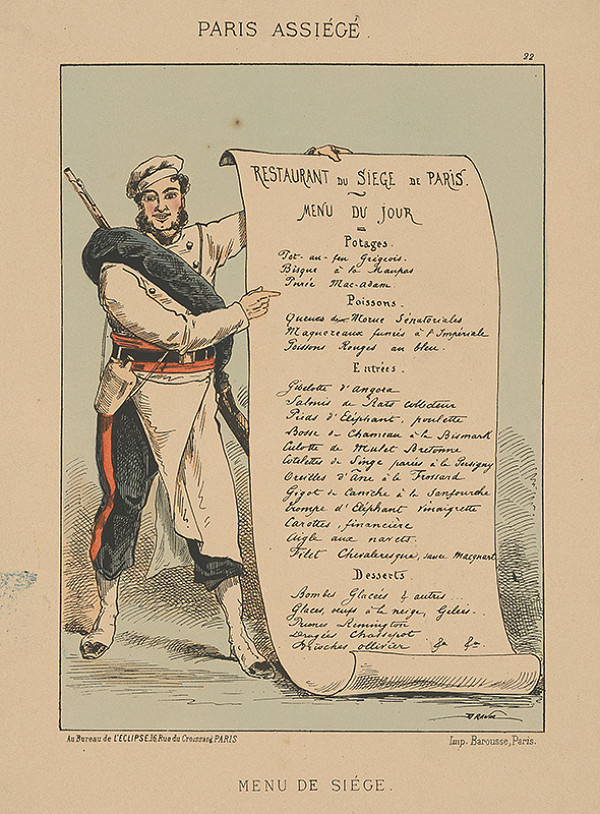 PARIS ASSIÉGÉ.
22
RESTAURANT DU SIEGE DE PARIS.
MENU DU JOUR
Potages.
Pot-au-feu Grégeois.
Bisque à la Maupas
Purée Mac-adam.
Poissons.
Queues de Morue Sénatoriales
Maquereaux fumés à l'Impériale
Poissons Rouges au bleu.
Entrées.
Gibelotte d'angora
Salmis de Rats collecteur
Pieds d'Eléphant, poulette
Bosse de Chameau à la Bismark
Culotte de Mulet Bretonne
Cotelettes de Singe panées à la Persigny
Oreilles d'Âne à la Frossard
Gigot de Caniche à la Sanfourche
Trompe d'Eléphant Vinaigrette
Carottes, financière
Aigle aux navets.
Filet Chevaleresque, sauce Macquart
Desserts.
Bombes Glacées & autres...
Glaces, oeufs à la neige, Gelées.
Prunes Remington
Dragées Chassepot
Brioches ollivier &a &a.
DRANER
Au Bureau de L'ECLIPSE, 16, Rue du Croissant, PARIS
Imp. Barousse, Paris.
MENU DE SIÉGE.